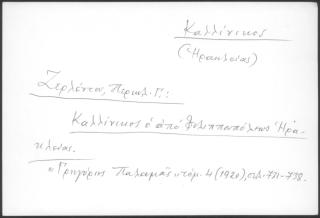 Καλλίνικος
(Ἡρακλείας)
Ζερλέντου, Περικλ. Γ.:
Καλλίνικος ὁ ἀπὸ Φιλιππουπόλεως Ἡρα-
κλείας.
"Γρηγόριος Παλαμᾶς" τόμ. 4 (1920), σελ. 771-778.